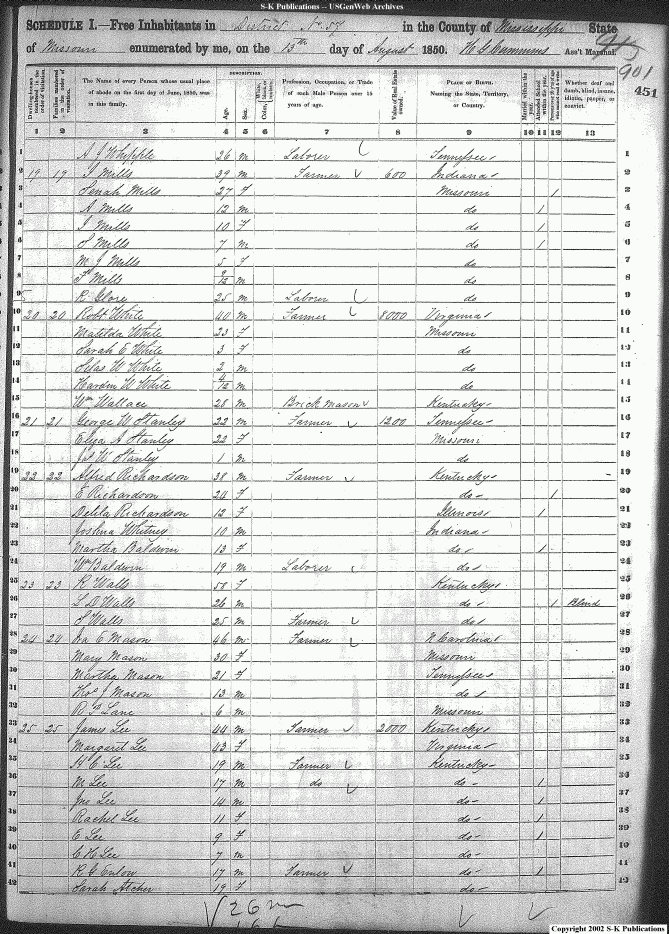 S-K Publications -- USGenWeb Archives
SCHEDULE I.—Free Inhabitants in District No 57 in the County of Mississippi State
of Missouri enumerated by me, on the 15th day of August 1850. Ass't Marshal.
901
451
DESCRIPTION.
The Name of every Person whose usual place of abode on the first day of June, 1850, was in this family.
Age.
Sex.
Profession, Occupation, or Trade of each Male Person over 15 years of age.
Value of Real Estate owned.
PLACE OF BIRTH. Naming the State, Territory, or Country.
Whether deaf and dumb, blind, insane, idiotic, pauper, or convict.
1 2 3 4 5 6 7 8 9 10 11 12 13
1 A J Whipple 26 m Laborer Tennessee 1
2 19 19 S Mills 39 m Farmer 600 Indiana 2
3 Senah Mills 27 F Missouri 1 3
4 A Mills 12 m do 1 4
5 I Mills 10 F do 1 5
6 S Mills 7 m do 1 6
7 M J Mills 5 F do 7
8 F Mills m do 8
9 R Glore 25 m Laborer do 9
10 20 20 Robt White 40 m Farmer 8000 Virginia 10
11 Matilda White 23 F Missouri 11
12 Sarah E White 3 F do 12
13 Silas W White 2 m do 13
14 Harden W White 4/12 m do 14
15 Wm Wallace 28 m Brick mason Kentucky 15
16 21 21 George W Stanley 22 m Farmer 1200 Tennessee 16
17 Eliza A Stanley 22 F Missouri 17
18 Jas W Stanley 1 m do 18
19 22 22 Alfred Richardson 38 m Farmer Kentucky 19
20 E Richardson 20 F do 1 20
21 Delila Richardson 12 F Illinois 1 21
22 Joshua Whitney 10 m Indiana 22
23 Martha Baldwin 13 F do 1 23
24 Wm Baldwin 19 m Laborer do 24
25 23 23 R Walls 58 F Kentucky 25
26 L D Walls 26 m do 1 Blind 26
27 S Walls 25 m Farmer do 27
28 24 24 Ira E Mason 46 m Farmer N Carolina 28
29 Mary Mason 30 F Missouri 29
30 Martha Mason 21 F Tennessee 30
31 Thos J Mason 13 m do 31
32 R P Lane 6 m Missouri 32
33 25 25 James Lee 44 m Farmer 2000 Kentucky 33
34 Margaret Lee 43 F Virginia 34
35 H C Lee 19 m Farmer Kentucky 35
36 M Lee 17 m do do 1 36
37 Jno Lee 14 m do 1 37
38 Rachel Lee 11 F do 1 38
39 E Lee 9 F do 1 39
40 C H Lee 7 m do 40
41 R G Enlow 17 m Farmer do 1 41
42 Sarah Atcher 19 F do 42
26 m
Copyright 2002 S-K Publications